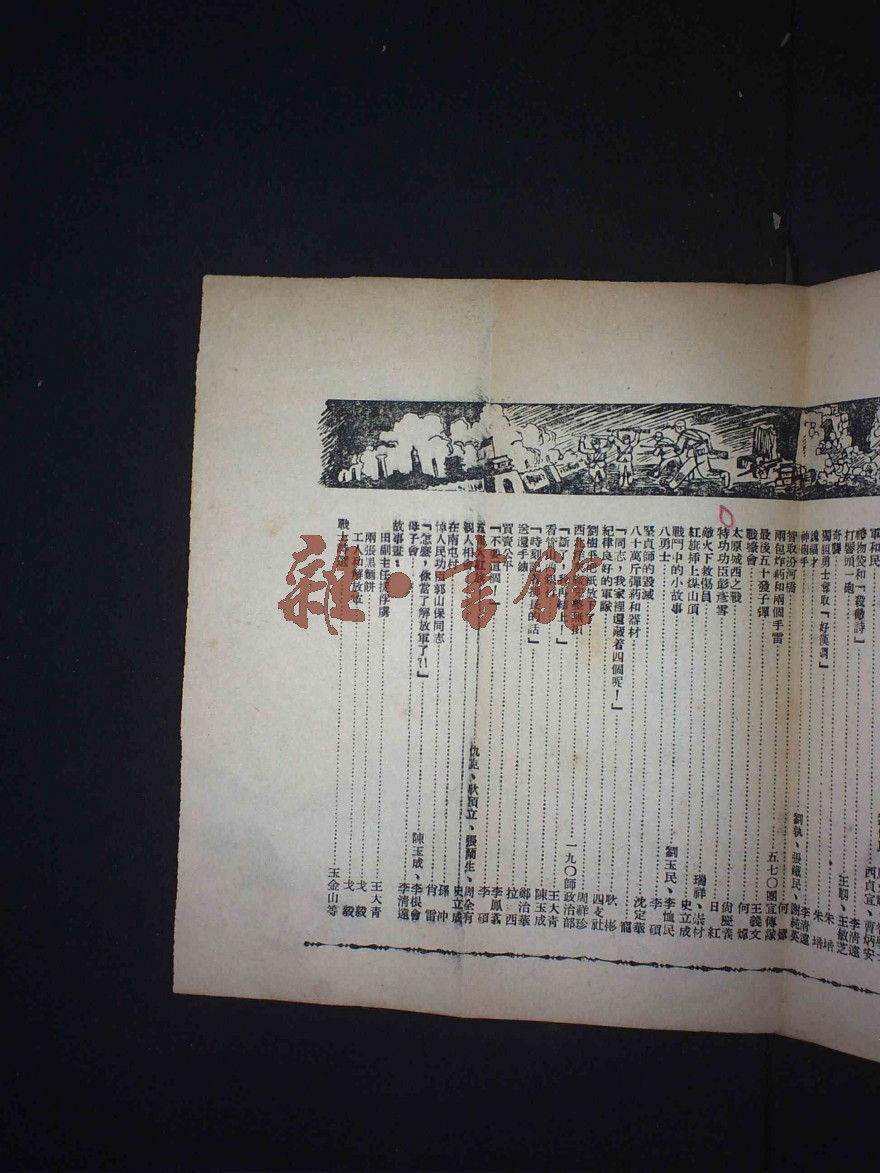 軍和民
打響頭一砲 李清遠
奇襲 王敏芝
獨胆勇士奪取「好漢調」 朱培
神砲手 李清遠
智取汾河橋 劉執、張鐵民、謝純英
兩包炸葯和兩個手雷 何煒
最後五十發子彈 五七〇團宣傳隊
戰壕會 王義文
太原城西之戰 何煒
特功功臣彭彥雪 尚慶義
敵火下救傷員 日紅
紅旗挿上煤山頂 瑞祥、崇材
戰鬥中的小故事 史立成
八勇士 劉玉民、李恤民
堅貞師的毀滅 李碩
八十萬斤彈葯和器材 沈定華
「同志，我家裡還藏着四個呢！」 龍
紀律良好的軍隊 耿彬
劉樹平 放下了 四支社
西北 周祥珍
「斷了，我再結上！」 一九〇師政治部
看管山西銀行 王大青
「時刻記着 的話」 陳玉成
送還手鐲 鄭治華
買賣公平 拉西
「不要這個！」 李鳳翥
李碩
親人相會 仇茈、耿預立、張蘭生、周全有
在南屯村 史立成
悼人民功臣郭山保同志 孫冲
「怎麼，你當了解放軍了？！」 肖雷
母子會 陳玉成、李根會
故事畫： 李清遠
田副主任 俘虜 王大青
兩張黑麵餅 戈毅
工人和解放軍 戈毅
戰士詩選 王金山等
雜·書館